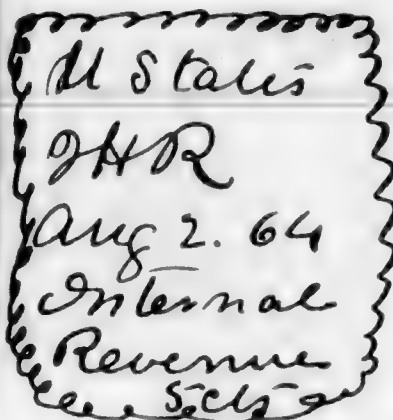 U States
JHR
Aug 2. 64
Internal
Revenue
5 cts